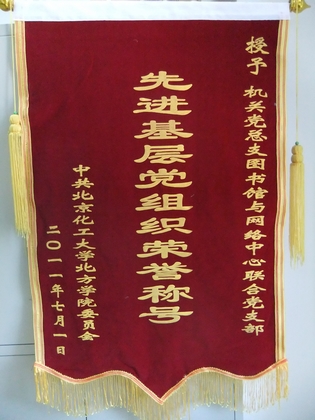 授予 机关党总支图书馆与网络中心联合党支部
先进基层党组织荣誉称号
中共北京化工大学北方学院委员会
二〇一一年七月一日